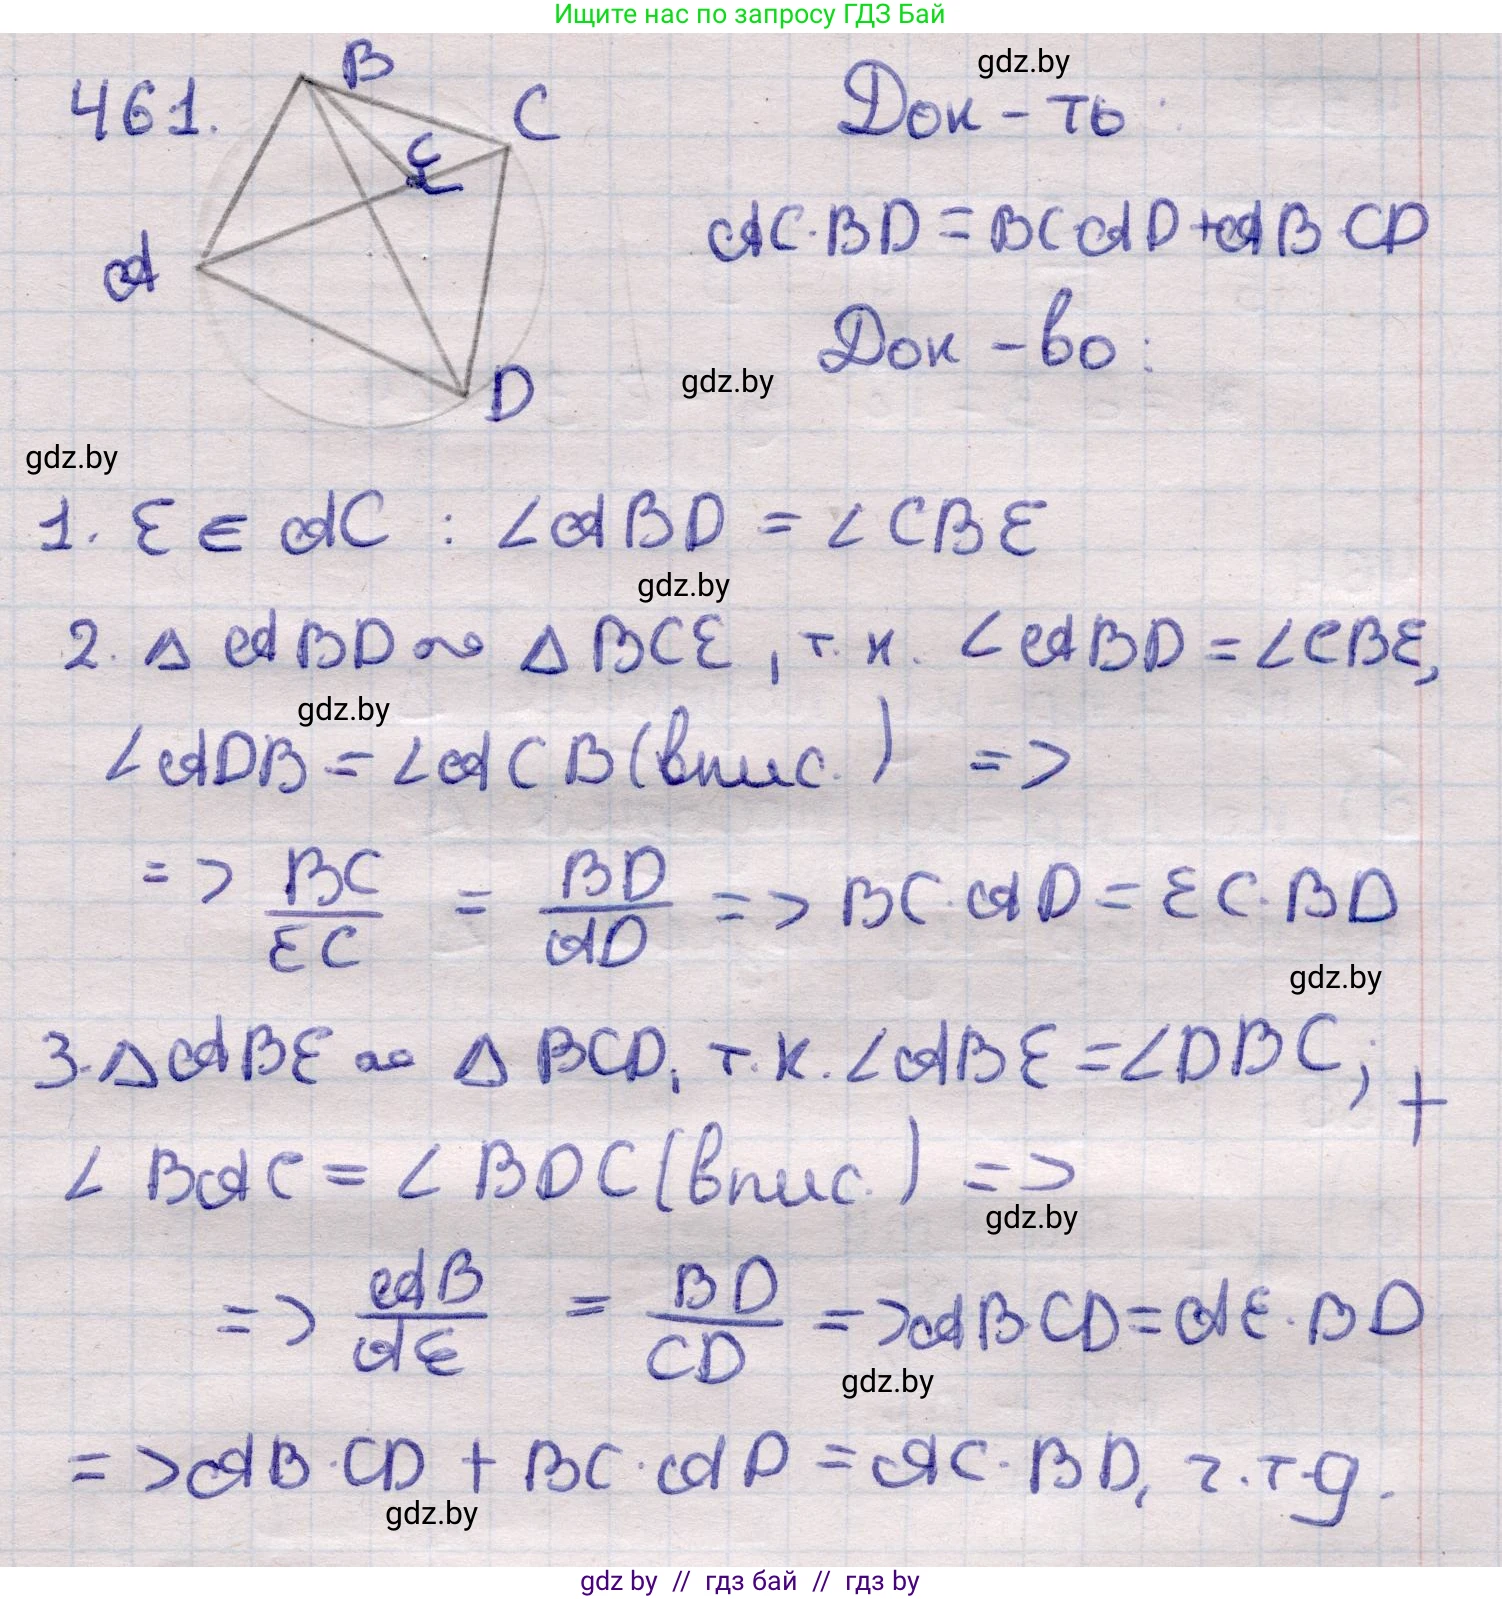 Ищите нас по запросу ГДЗ Бай
461.
B
C
E
A
D
gdz.by
Док-ть:
AC·BD = BC·AD + AB·CD
Док-во:
gdz.by
gdz.by
1. E ∈ AC : ∠ABD = ∠CBE
gdz.by
2. Δ ABD ∾ Δ BCE, т.к. ∠ABD = ∠CBE,
gdz.by
∠ADB = ∠ACB (впис.) =>
=> BC/EC = BD/AD => BC·AD = EC·BD
gdz.by
3. Δ ABE ∾ Δ BCD, т.к. ∠ABE = ∠DBC; +
∠BAC = ∠BDC (впис.) =>
gdz.by
=> AB/AE = BD/CD => AB·CD = AE·BD
gdz.by
=> AB·CD + BC·AD = AC·BD, ч.т.д.
gdz.by
gdz by // гдз бай // гдз by